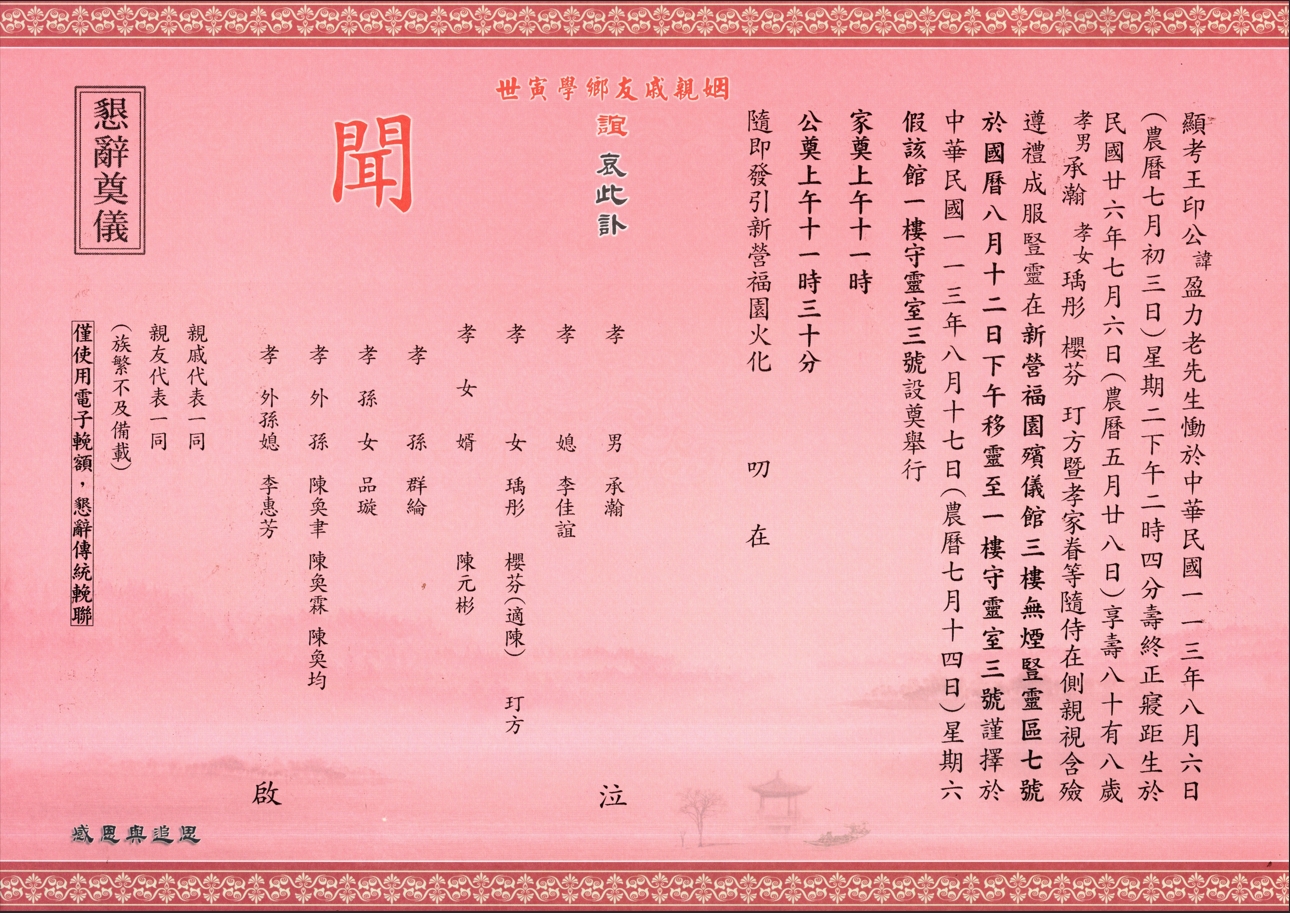 顯考王印公諱盈力老先生慟於中華民國一一三年八月六日
(農曆七月初三日)星期二下午二時四分壽終正寢距生於
民國廿六年七月六日(農曆五月廿八日)享壽八十有八歲
孝男承瀚 孝女瑀彤 櫻芬 玎方暨孝家眷等隨侍在側親視含殮
遵禮成服豎靈在新營福園殯儀館三樓無煙豎靈區七號
於國曆八月十二日下午移靈至一樓守靈室三號謹擇於
中華民國一一三年八月十七日(農曆七月十四日)星期六
假該館一樓守靈室三號設奠舉行
家奠上午十一時
公奠上午十一時三十分
隨即發引新營福園火化 叨 在
姻親戚友鄉學寅世
誼 哀此訃
聞
孝男 承瀚 泣
孝媳 李佳誼
孝女 瑀彤 櫻芬(適陳) 玎方
孝女婿 陳元彬
孝孫 群綸
孝孫女 品璇
孝外孫 陳奐聿 陳奐霖 陳奐均
孝外孫媳 李惠芳 啟
親戚代表一同
親友代表一同
(族繁不及備載)
懇辭奠儀
僅使用電子輓額，懇辭傳統輓聯
感恩與追思